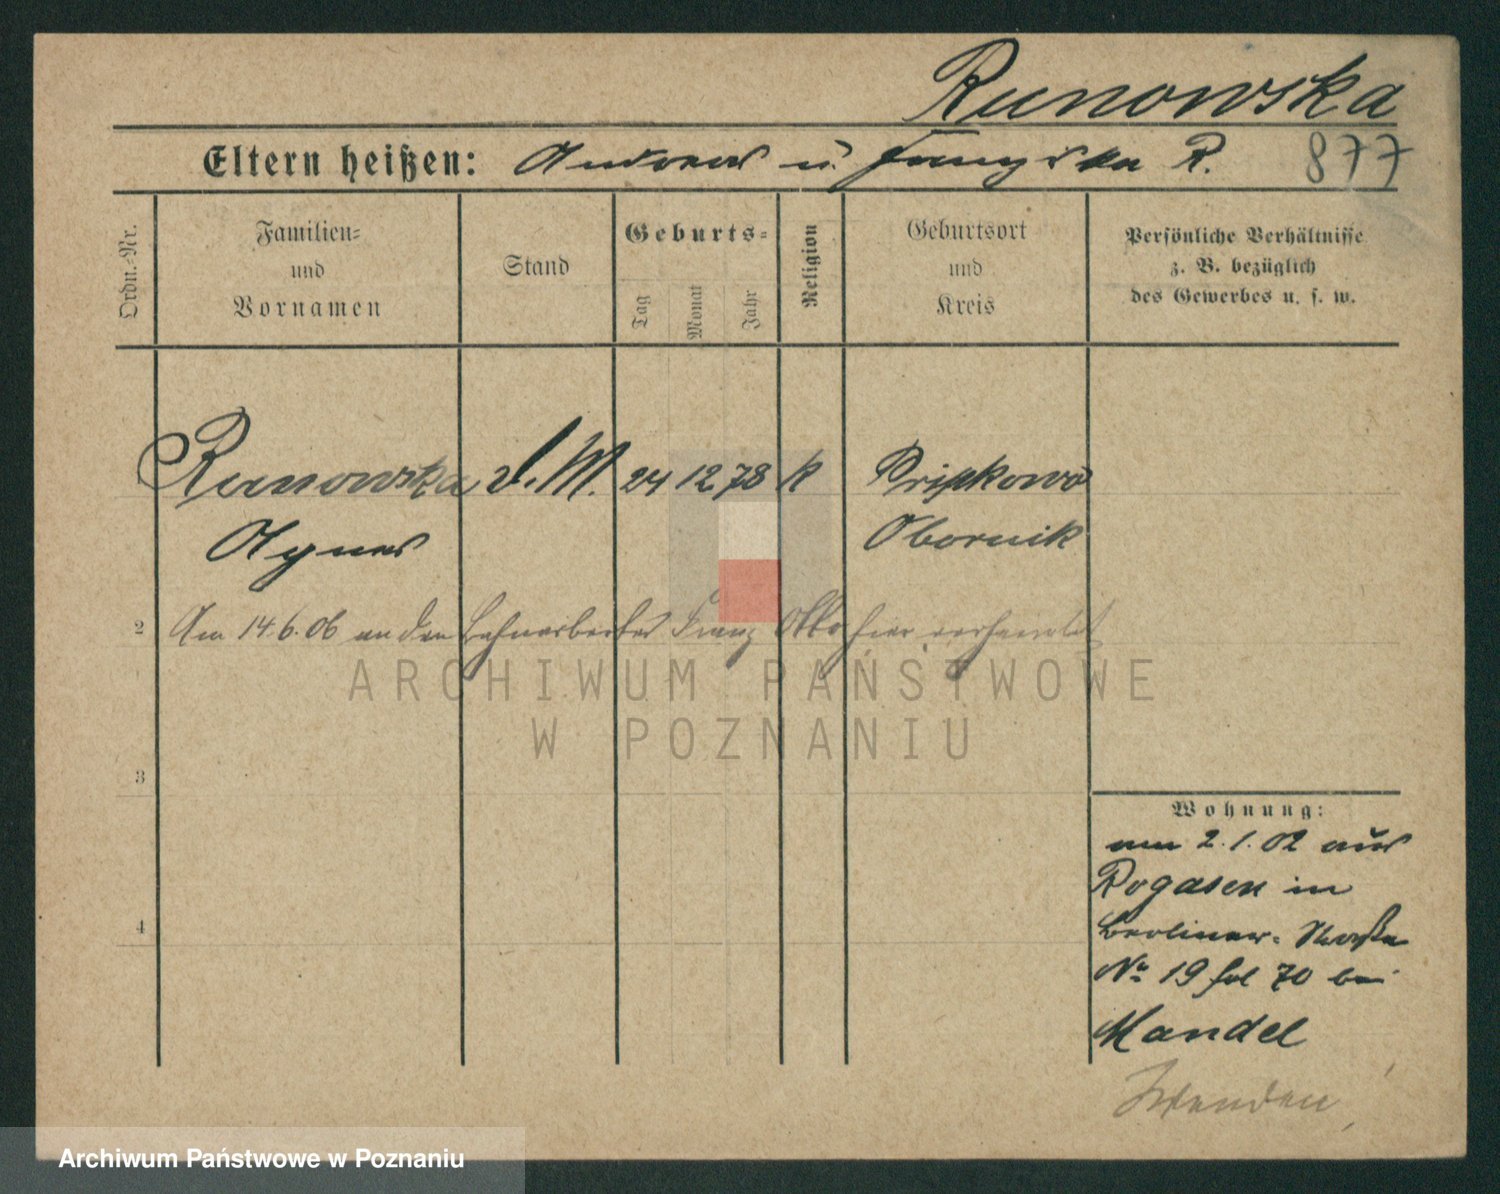 Runowska
Eltern heißen: Andreas u. Franziska R. 877
Ordn.-Nr.
Familien-
und
Vornamen
Stand
Geburts-
Tag
Monat
Jahr
Religion
Geburtsort
und
Kreis
Persönliche Verhältnisse
z. B. bezüglich
des Gewerbes u. s. w.
Runowska D.M. 24 12 78 k
Obornik
Agnes
2 Am 14.6.06 an den Bahnarbeiter Franz Otto hier verheiratet
ARCHIWUM PAŃSTWOWE
W POZNANIU
3
4
Wohnung:
am 2.1.02 aus
Rogasen in
Berliner-Straße
No 19 fol 70 bei
Mandel
Wenden
Archiwum Państwowe w Poznaniu